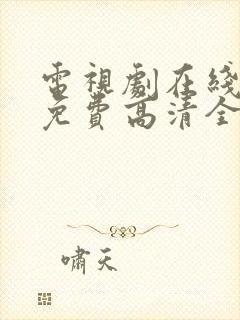 電視劇在綫
免費高清全
嘯天